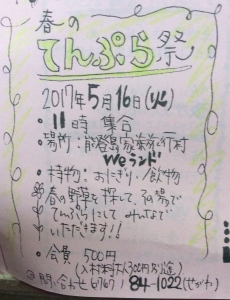 春の
てんぷら祭
2017年5月16日(火)
・11時 集合
・場所:能登島家族旅行村
Weランド
・持物:おにぎり・飲物
春の野草を探して、その場で
てんぷらにして みんなで
いただきます!!
・会費 500円
(入村料大人300円別途)
問い合わせ 0767/84-1022(せがわ)